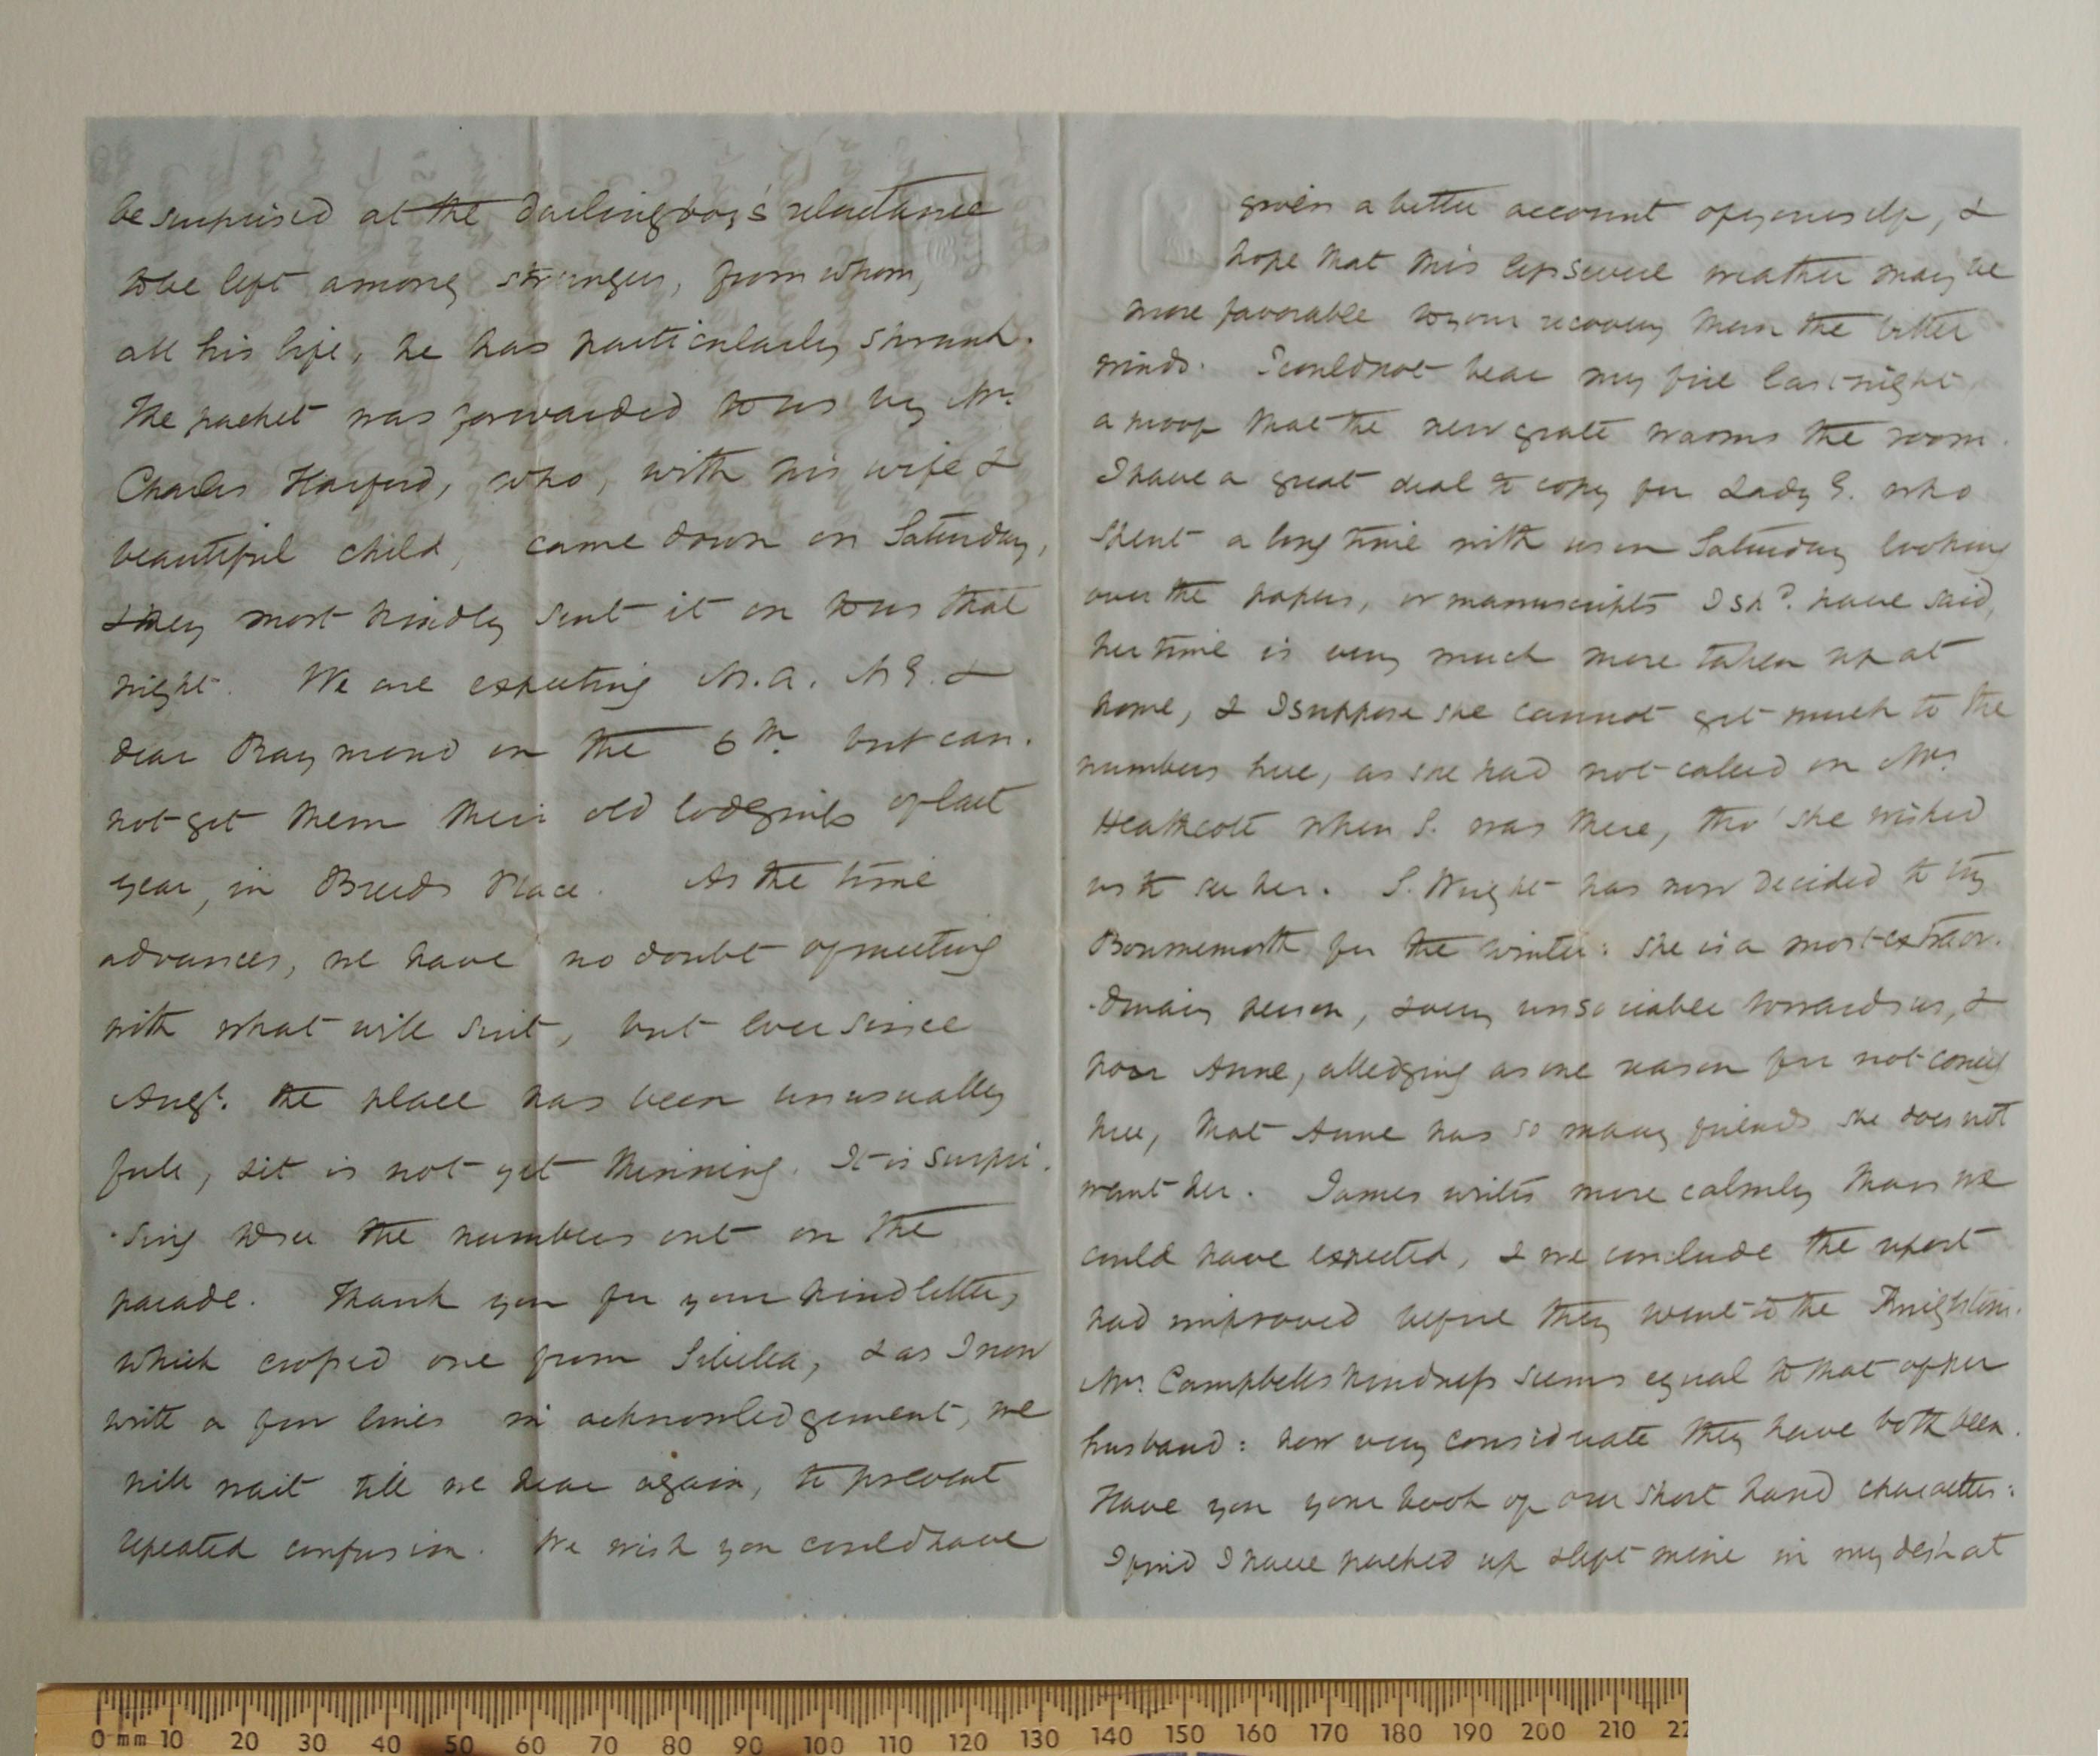 be surprised at the darling boy's reluctance
to be left among strangers, from whom,
all his life, he has particularly shrunk.
The packet was forwarded to us by Mr.
Charles Harford, who, with his wife &
beautiful child, came down on Saturday,
& they most kindly sent it on to us that
night. We are expecting M.A. M E. &
dear Raymond on the 6th. but can-
not get them their old lodgings of last
year, in Breeds Place. As the time
advances, we have no doubt of meeting
with what will suit, but ever since
Augt. the place has been unusually
full, & it is not yet thinning. It is surpri-
-sing to see the numbers out on the
parade. Thank you for your kind letter,
which crossed one from Sibella, & as I now
write a few lines in acknowledgement, we
will wait till we hear again, to prevent
repeated confusion. We wish you could have
given a better account of yourself, &
hope that this less severe weather may be
more favorable to your recovery than the bitter
winds. I could not bear my fire last night
a proof that the new grate warms the room.
I have a great deal to copy for Lady G. who
spent a long time with us on Saturday looking
over the papers, or manuscripts I shd. have said,
her time is very much more taken up at
home, & I suppose she cannot get much to the
numbers here, as she had not called on Mrs.
Heathcote when S. was there, tho' she wished
us to see her. S. Wright has now decided to try
Bournemouth for the winter: she is a most extraor-
-dinary person, & very unsociable towards us, &
poor Anne, alledging as one reason for not coming
here, that Anne has so many friends she does not
want her. James writes more calmly than we
could have expected, & we conclude the report
had improved before they went to the Knightons.
Mrs. Campbells kindness seems equal to that of her
husband: how very considerate they have both been.
Have you your book of our short hand characters:
I find I have packed up & left mine in my desk at
0 mm 10 20 30 40 50 60 70 80 90 100 110 120 130 140 150 160 170 180 190 200 210 22